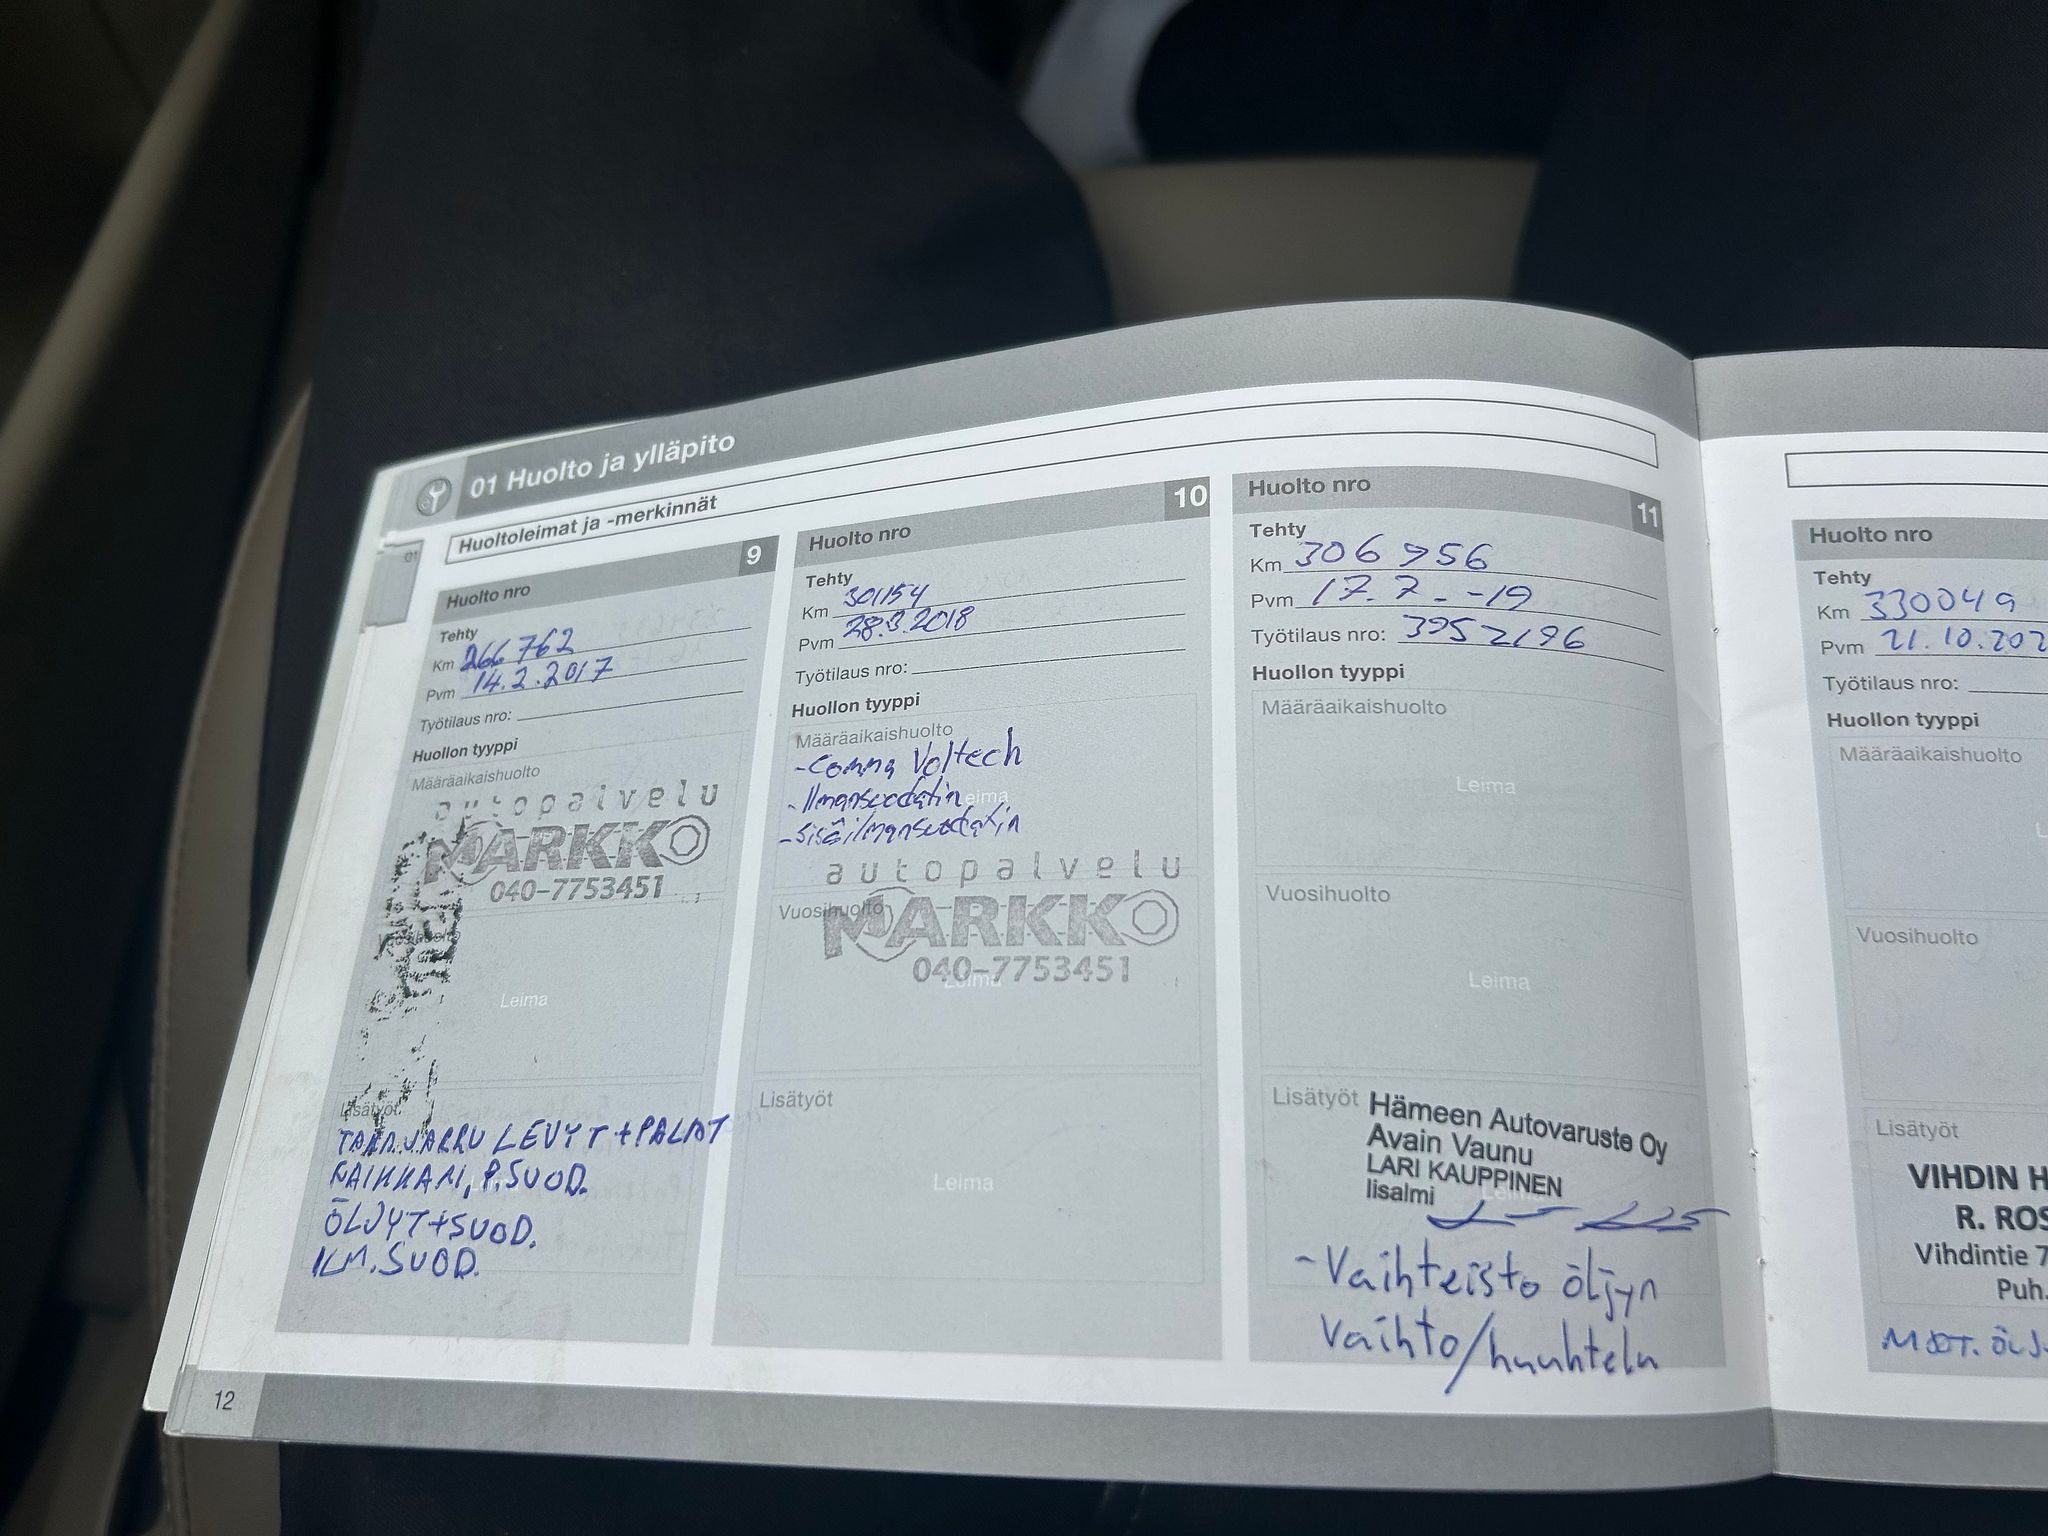 01 Huolto ja ylläpito
Huoltoleimat ja -merkinnät
01
Huolto nro 9
Tehty
Km 266 762
Pvm 14.2.2017
Työtilaus nro:
Huollon tyyppi
Määräaikaishuolto
autopalvelu
MARKKO
040-7753451
Vuosihuolto
Leima
Lisätyöt
LEVYT + PALAT
RAIKKAM, P.SUOD.
ÖLJYT+SUOD.
ILM.SUOD.
Huolto nro 10
Tehty
Km 301154
Pvm 28.3.2018
Työtilaus nro:
Huollon tyyppi
Määräaikaishuolto
-Comma Voltech
-Ilmansuodatin
Leima
-Sisäilmansuodatin
autopalvelu
Vuosihuolto
MARKKO
040-7753451
Leima
Lisätyöt
Leima
Huolto nro 11
Tehty
Km 306 956
Pvm 17.7.-19
Työtilaus nro: 3952196
Huollon tyyppi
Määräaikaishuolto
Leima
Vuosihuolto
Leima
Lisätyöt
Hämeen Autovaruste Oy
Avain Vaunu
LARI KAUPPINEN
Iisalmi
-Vaihteisto öljyn
vaihto/huuhtelu
Huolto nro
Tehty
Km 330049
Pvm 21.10.202
Työtilaus nro:
Huollon tyyppi
Määräaikaishuolto
L
Vuosihuolto
Lisätyöt
VIHDIN H
R. ROS
Vihdintie 7
Puh.
MOT. ÖLJ
12